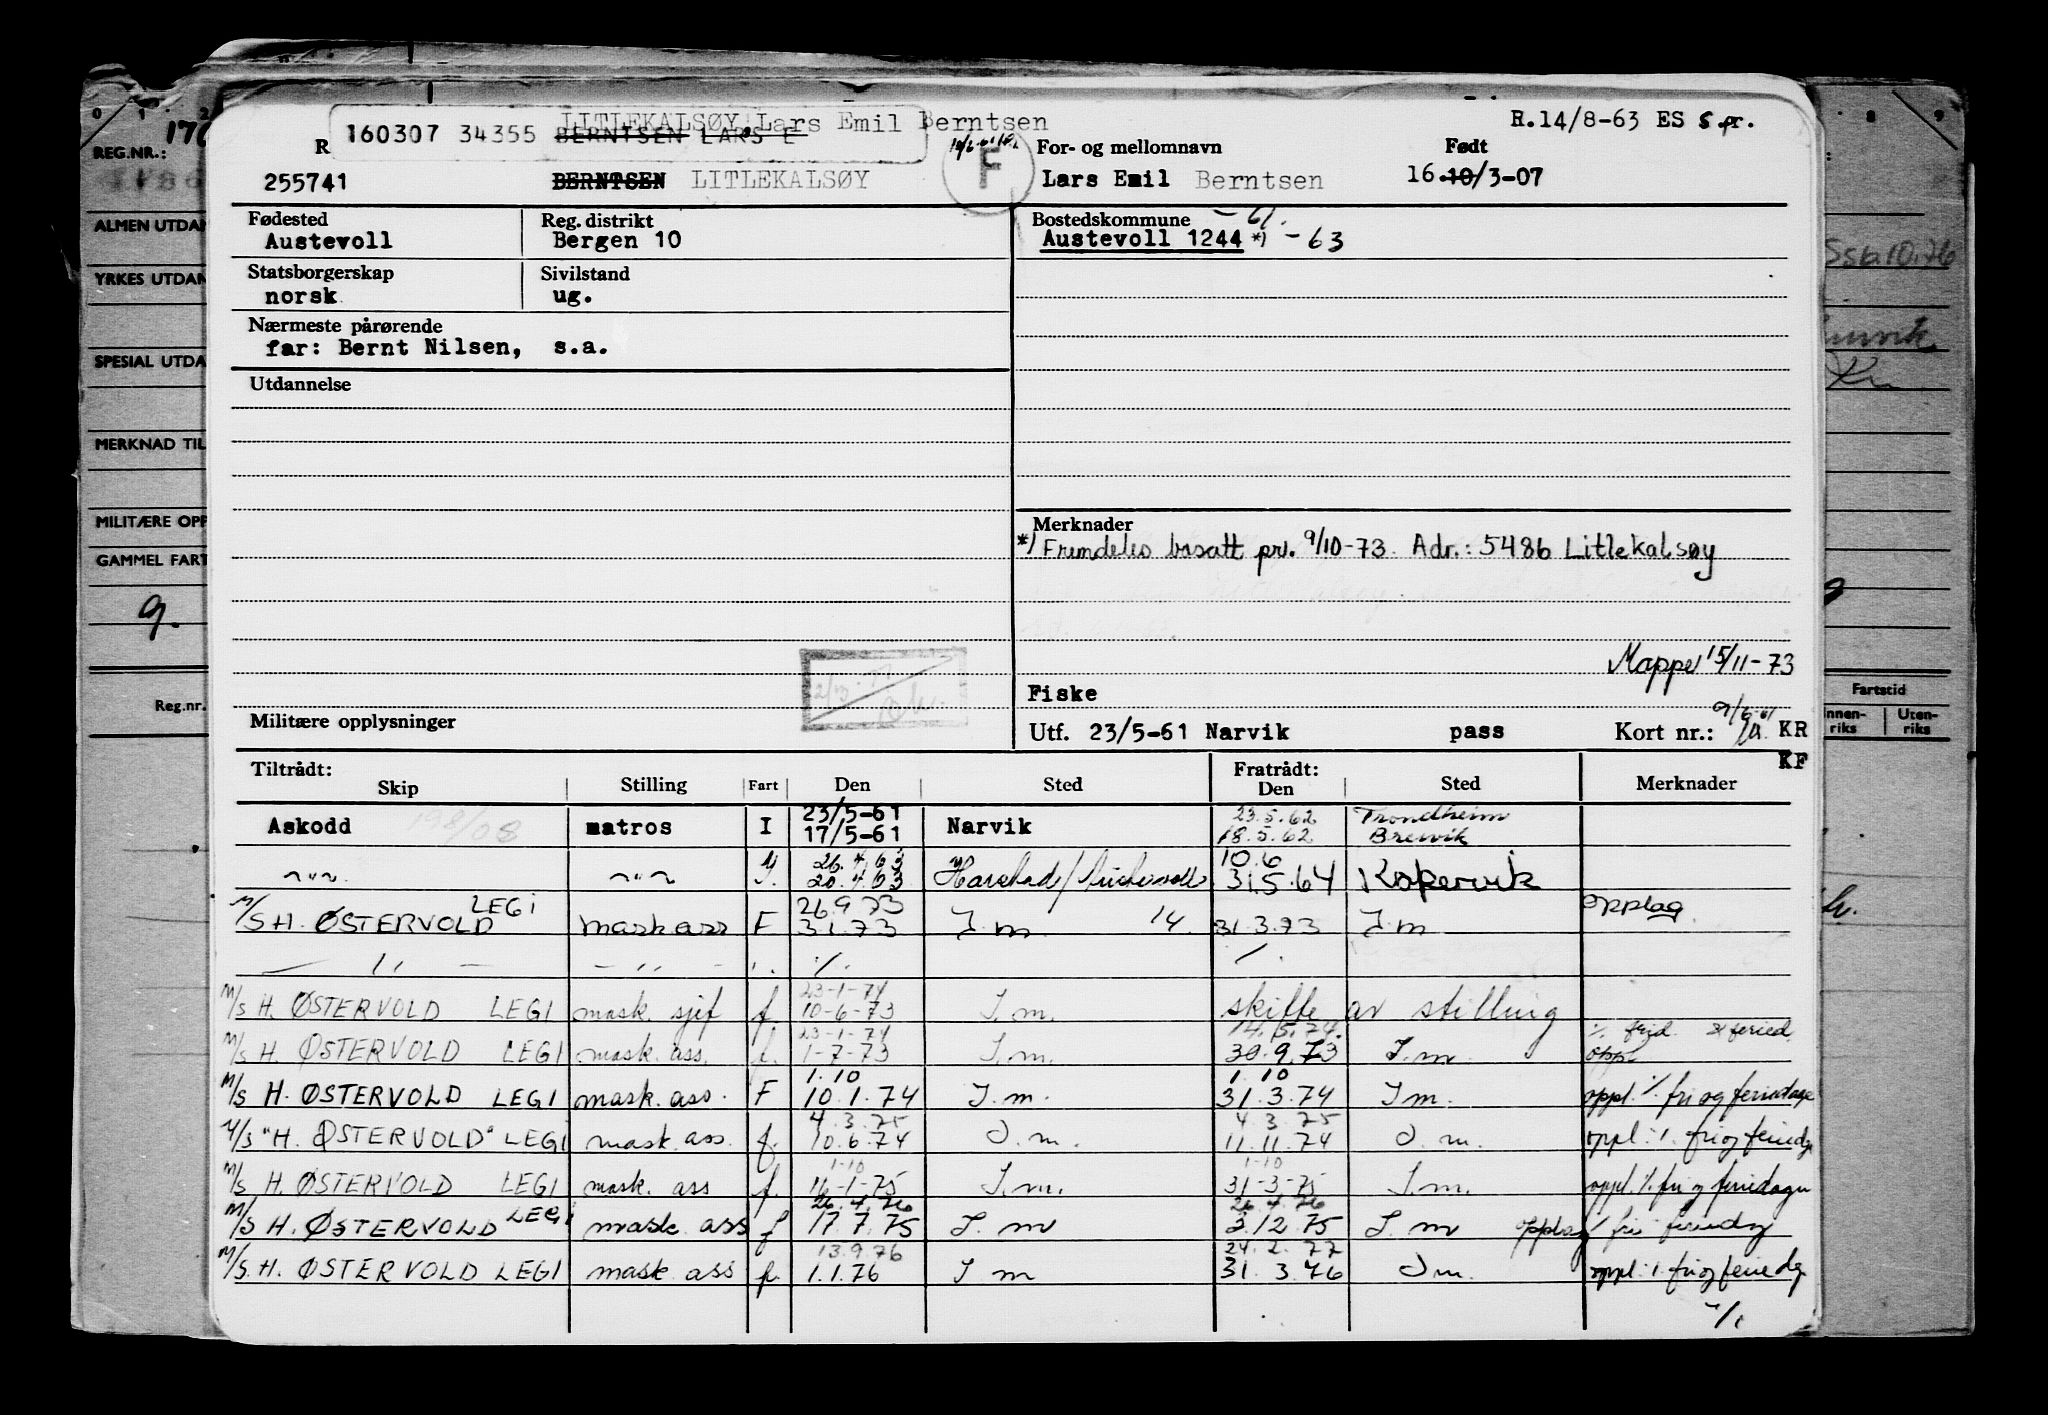 LITLEKALSØY Lars Emil Berntsen
R.14/8-63 ES 5 pr.
160307 34355 BERNTSEN LARS E
For- og mellomnavn
Født
F
255741 BERNTSEN LITLEKALSØY
Lars Emil Berntsen
16.10/3-07
Fødested
Austevoll
Reg. distrikt
Bergen 10
Bostedskommune
- 61.
Austevoll 1244 *) - 63
Statsborgerskap
norsk
Sivilstand
ug.
Nærmeste pårørende
far: Bernt Nilsen, s.a.
Utdannelse
Merknader
*) Fremdeles bosatt pr. 9/10-73. Adr.: 5486 Litlekalsøy
Mappe 15/11-73
Fiske
Militære opplysninger
Utf. 23/5-61 Narvik pass Kort nr.: KR
KF
Tiltrådt:
Skip
Stilling
Fart
Den
Sted
Fratrådt:
Den
Sted
Merknader
Askodd 198/08 matros I 23/5-61 17/5-61 Narvik 23.5.62 18.5.62 Trondheim Brevik
-"- -"- 26.4.63 20.4.63 Harstad/ 10.6 31.5.64 Kopervik
M/S H. ØSTERVOLD LEGI mask ass F 26.9.73 3.1.73 I.m. 14. 31.3.73 I.m opplag
- " - - " -
M/S H. ØSTERVOLD LEGI mask. sjef f. 23-1-74 10-6-73 I.m. skifte av stilling
M/S H. ØSTERVOLD LEGI mask. ass. f. 23-1-74 1-7-73 I.m. 14.5.74 30.9.73 I.m. oppl
M/S H. ØSTERVOLD LEGI mask. ass. F 1.10 10.1.74 I.m. 1.10 31.3.74 I.m. oppl. % fri og feriedage
M/S "H. ØSTERVOLD" LEGI mask. ass. f. 4.3.75 10.6.74 I.m. 4.3.75 11.11.74 I.m. oppl. % fri og feriedg
M/S H. ØSTERVOLD LEGI mask. ass f. 1-10 16-1-75 I.m. 1-10 31-3-75 I.m. oppl. % fri og feriedager
M/S H. ØSTERVOLD LEGI mask. ass f 26.4.76 17.7.75 I.m 26.4.76 2.12.75 I.m opplag % fri feriedag
M/S. H. ØSTERVOLD LEGI mask ass f. 13.9.76 1.1.76 I.m 24.2.77 31.3.76 I.m. oppl. % fri og feriedg
REG.NR.:
ALMEN UTDAN
YRKES UTDAN
SPESIAL UTDA
MERKNAD TIL
MILITÆRE OPP
GAMMEL FART
9.
Reg.nr.
Fartstid
Innen-
riks
Uten-
riks